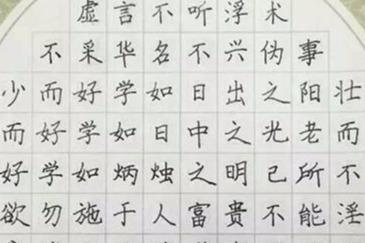 虚言不听浮术
不采华名不兴伪事
少而好学如日出之阳壮
而好学如日中之光老而
好学如炳烛之明己所不
欲勿施于人富贵不能淫